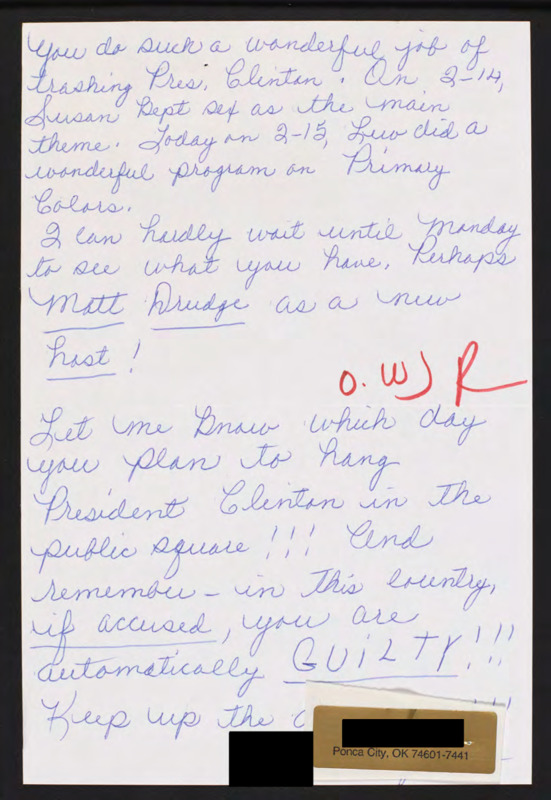 You do such a wonderful job of
trashing Pres. Clinton. On 2-14,
Susan Kept sex as the main
theme. Today on 2-15, did a
wonderful program on Primary
Colors.
I can hardly wait until Monday
to see what you have. Perhaps
Matt Drudge as a new
host!
O. WJR
Let me Know which day
you plan to hang
President Clinton in the
public square!!! And
remember - in this country,
if accused, you are
automatically GUILTY!!!
Keep up the
Ponca City, OK 74601-7441